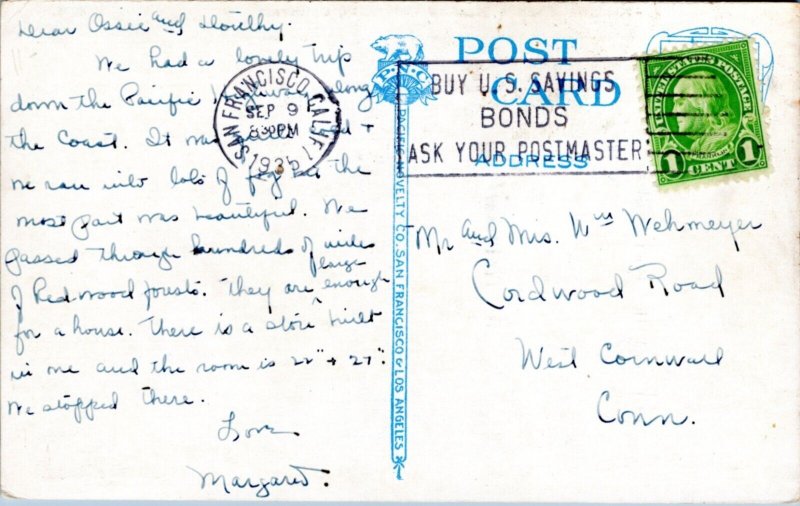 Dear Ossie and Dorothy.
We had a lovely trip
down the Pacific along
the Coast. It was +
we ran into lots of fog but the
most part was beautiful. We
passed through hundreds of miles
of Redwood forests. They are large enough
for a house. There is a store built
in one and the room is 22" + 27".
We stopped there.
Love
Margaret.
SAN FRANCISCO, CALIF.
SEP 9
830PM
1935
P.N.C.
PACIFIC NOVELTY CO. SAN FRANCISCO & LOS ANGELES
POST
CARD
ADDRESS
BUY U.S. SAVINGS
BONDS
ASK YOUR POSTMASTER
UNITED STATES POSTAGE
1 CENT 1
Mr and Mrs. Wm Wehmeyer
Cordwood Road
West Cornwall
Conn.